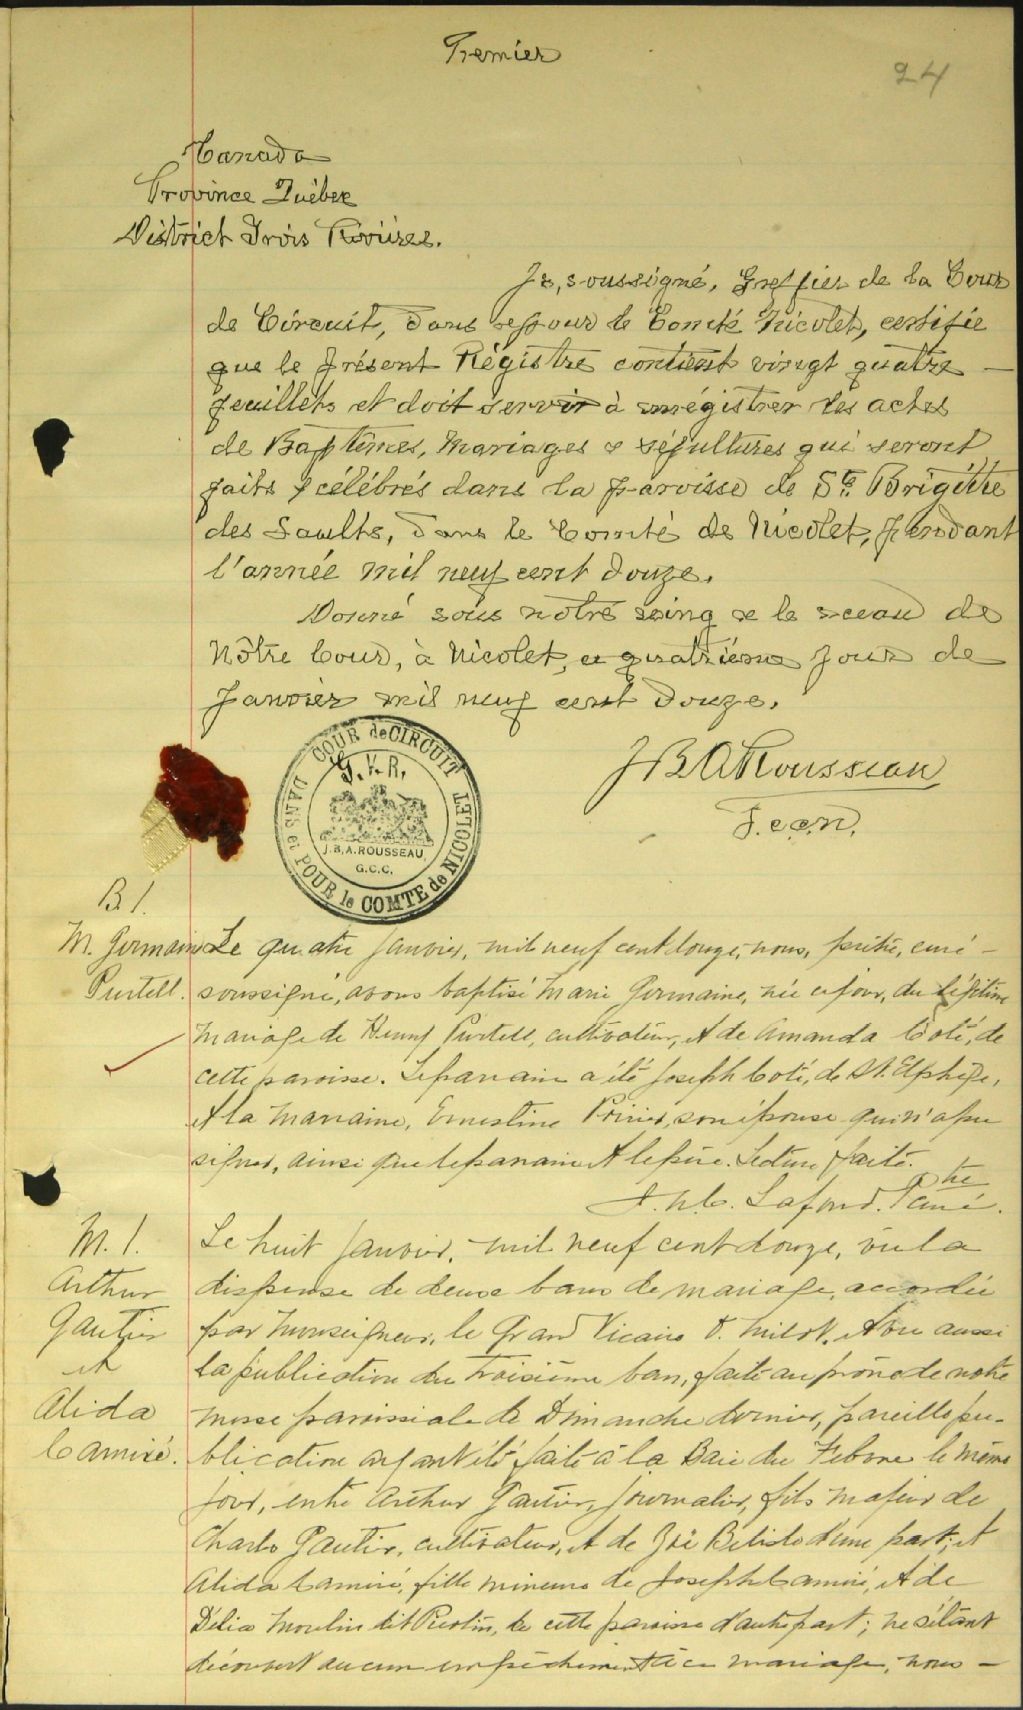 Premier
24
Canada
Province Québec
District Trois Rivières.
Je, soussigné, Greffier de la Cour
de Circuit, dans et pour le Comté Nicolet, certifie
que le présent Régistre contient vingt quatre —
feuillets et doit servir à enrégistrer les actes
de Baptêmes, Mariages & sépultures qui seront
faits & célébrés dans la paroisse de Ste. Brigitte
des Saults, dans le Comté de Nicolet, pendant
l'année mil neuf cent douze.
Donné sous notre seing & le sceau de
Nôtre Cour, à Nicolet, ce quatrième jour de
Janvier mil neuf cent douze.
COUR de CIRCUIT
DANS et POUR le COMTE de NICOLET
G.V.R.
J.B.A. ROUSSEAU,
G.C.C.
J B A Rousseau
G.c.c.n.
B. 1.
M. Germaine
Purtell.
Le quatre janvier, mil neuf cent douze, nous, prêtre, curé —
soussigné, avons baptisé Marie Germaine, née ce jour, du légitime
mariage de Henry Purtell, cultivateur, et de Amanda Coté, de
cette paroisse. Le parrain a été Joseph Coté, de St. Elphège,
et la marraine, Ernestine Poirier, son épouse qui n'a pu
signer, ainsi que le parrain et le père. Lecture faite.
Lafond. Ptre curé.
M. 1.
Arthur
Gautier
et
Alida
Camiré.
Le huit janvier, mil neuf cent douze, vu la
dispense de deux bans de mariage, accordée
par Monseigneur, le Grand Vicaire Milot, et vu aussi
la publication du troisième ban, faite au prône de notre
messe paroissiale de Dimanche dernier, pareille pu-
blication ayant été faite à la Baie du Febvre le même
jour, entre Arthur Gautier, journalier, fils majeur de
Charles Gautier, cultivateur, et de Zoé Belisle d'une part; et
Alida Camiré, fille mineure de Joseph Camiré, et de
Délia Moulin dit, de cette paroisse d'autre part; ne s'étant
découvert aucun empêchement à ce mariage, nous —